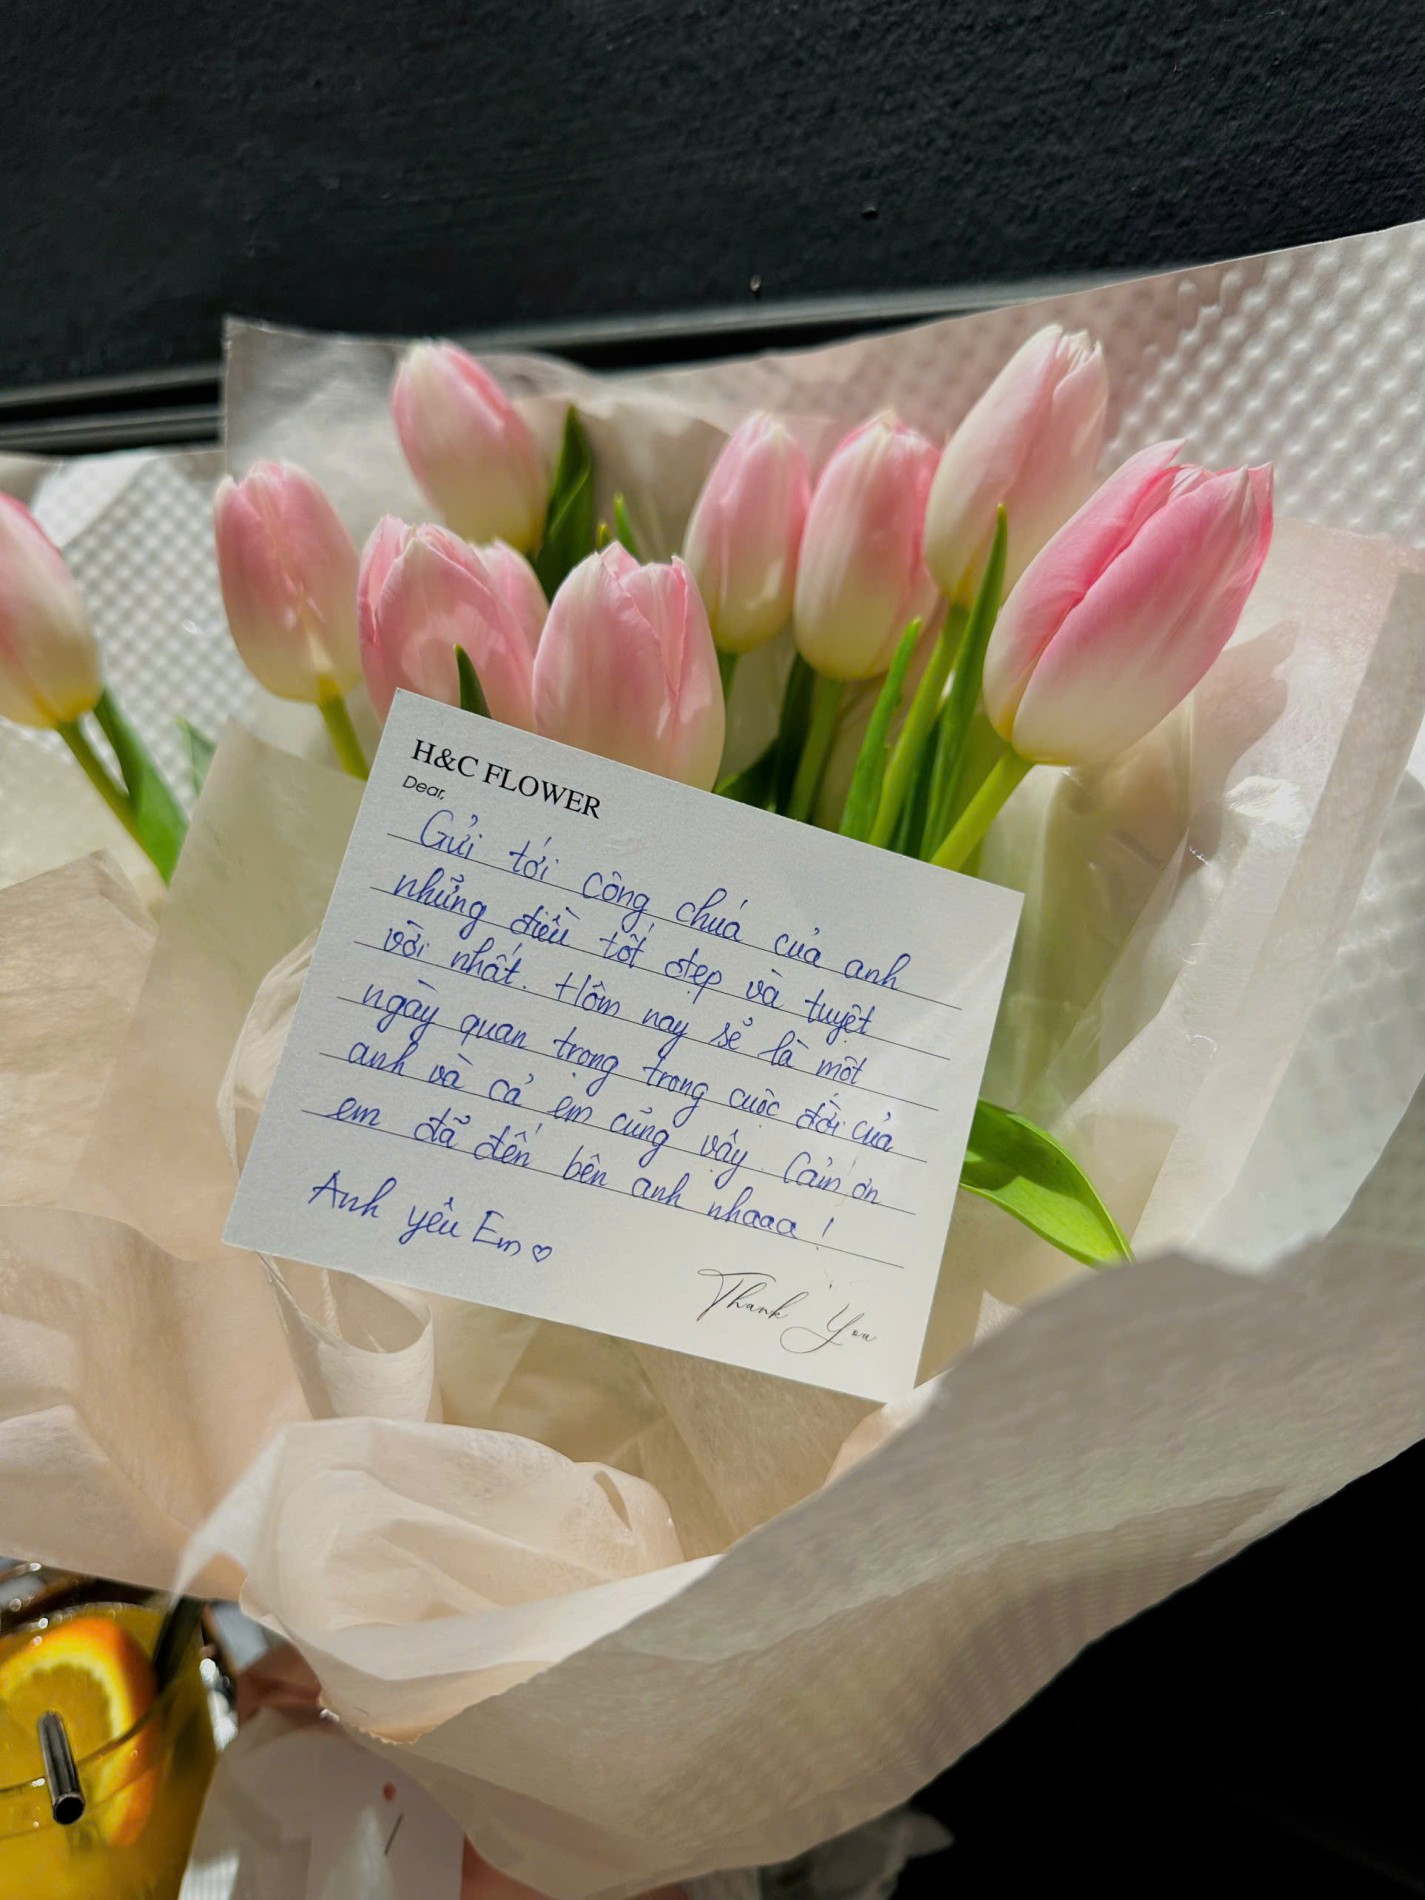 H&C FLOWER
Dear,
Gửi tới công chúa của anh
những điều tốt đẹp và tuyệt
vời nhất. Hôm nay sẽ là một
ngày quan trọng trong cuộc đời của
anh và cả em cũng vậy. Cảm ơn
em đã đến bên anh nhaaa!
Anh yêu Em ♡
Thank You